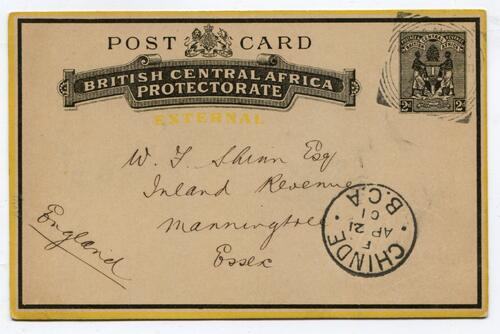 POST CARD
BRITISH CENTRAL AFRICA
PROTECTORATE
EXTERNAL
BRITISH CENTRAL AFRICA
2d 2d
W. J. Shinn Esq
Inland Revenue
Manningtree
Essex
England
CHINDE
F
AP 21
01
B.C.A